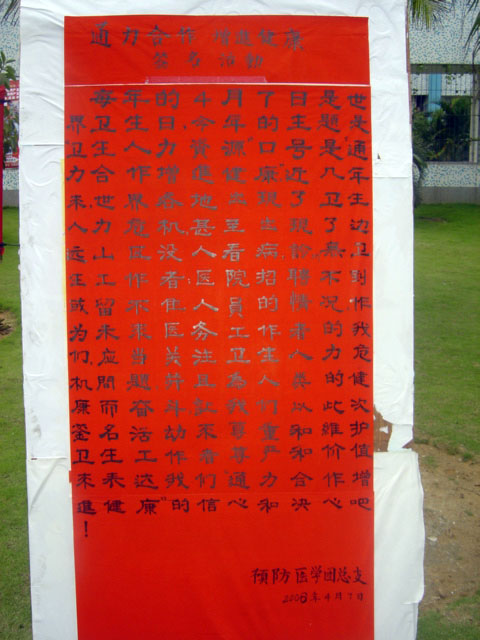 通力合作 增進健康
签名活動
每年的4月7日是世
界卫生日,今年的主题是
"卫生人力资源",口号是"通
力合作,增進健康"近几年
来世界各地出现了卫生
人力危机,甚至出现了边
远山区没人看病,無卫
生工作者,医院招聘不到
或留不住人員的情况,作
为未来医务工作者的我
们,应当关注卫生人力危
机问题,并且為人类的健
康而奋斗,让我们以此次
签名活动,来尊重和維护
卫生工作者尊严和价值
来表达我们"通力合作增
進健康"的信心和决心吧
!
预防医学团总支
2008年4月7日